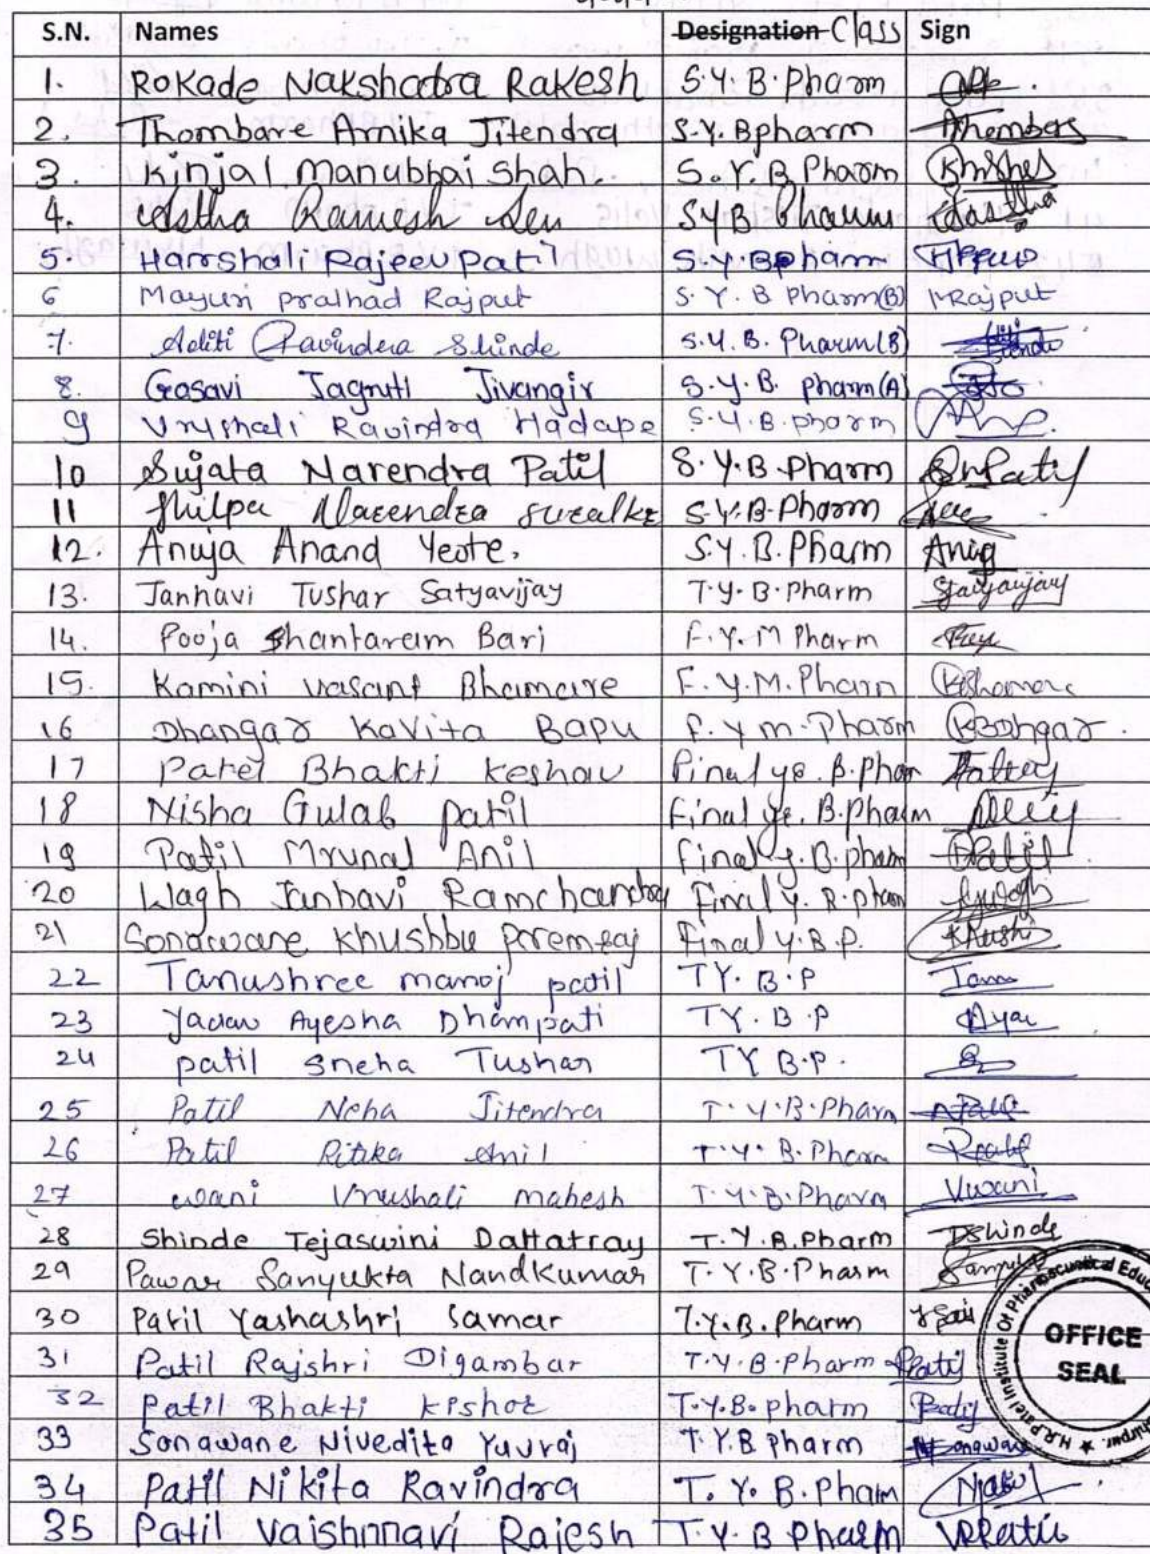 S.N. Names Designation Class Sign
1. Rokade Nakshatra Rakesh S.Y. B. Pharm
2. Thombare Arnika Jitendra S.Y. Bpharm Thombare
3. Kinjal Manubhai Shah. S.Y. B Pharm
4. Astha Ramesh Sen SYB Pharm Aastha
5. Harshali Rajeev Patil S.Y. Bpharm
6 Mayuri pralhad Rajput S.Y. B Pharm(B) MRajput
7. Aditi Ravindera Shinde S.Y. B. Pharm(B)
8. Gosavi Jagruti Jivangir S.Y.B. pharm(A)
9 Vrushali Ravindra Hadape S.Y.B.pharm
10 Sujata Narendra Patil S.Y.B Pharm SnPatil
11 Shilpa Narendra Suralke S.Y.B.Pharm
12. Anuja Anand Yeote. S.Y. B. Pharm Anuj
13. Janhavi Tushar Satyavijay T.Y. B. Pharm Satyavijay
14. Pooja Shantaram Bari F.Y. M Pharm
15. Kamini Vasant Bhamare F.Y.M. Pharm KBhamare
16 Dhangar Kavita Bapu F.Y M. Pharm KBDhngar.
17 Patel Bhakti Keshav Final ye. B.Phar
18 Nisha Gulab patil Final ye. B.Pharm
19 Patil Mrunal Anil Final y. B. pharm Patil
20 Wagh Janhavi Ramchandra Final y. B. pham
21 Sonawane Khushbu Premraj Final y. B.P. Khushi
22 Tanushree manoj patil TY. B.P Tanu
23 Yadav Ayesha Dhanpati TY. B.P Aya
24 patil Sneha Tushar TY B.P.
25 Patil Neha Jitendra T.Y.B.Pharm
26 Patil Ritika Anil T.Y. B. Pharm
27 wani Vrushali mahesh T.Y.B.Pharm Vwani
28 Shinde Tejaswini Dattatray T.Y.B.Pharm TShinde
29 Pawar Sanyukta Nandkumar T.Y.B.Pharm Sanyukta
30 Patil Yashashri Samar T.Y.B. Pharm
31 Patil Rajshri Digambar T.Y.B.Pharm RPatil
32 Patil Bhakti Kishor T.Y.B. pharm
33 Sonawane Nivedita Yuvraj T.Y.B pharm NSonawane
34 Patil Nikita Ravindra T.Y. B. Pham
35 Patil Vaishnnavi Rajesh T.Y.B Pharm VRPatil
H.R.Patel Institute Of Pharmaceutical Educ
OFFICE
SEAL